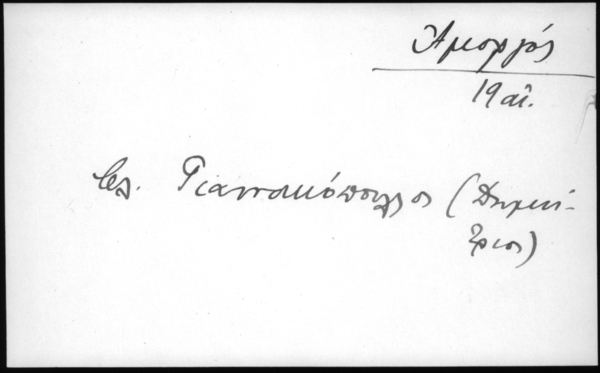 Ἀμοργός
19 αἰ.
βλ. Γιαννακόπουλος (Δημή-
τριος)